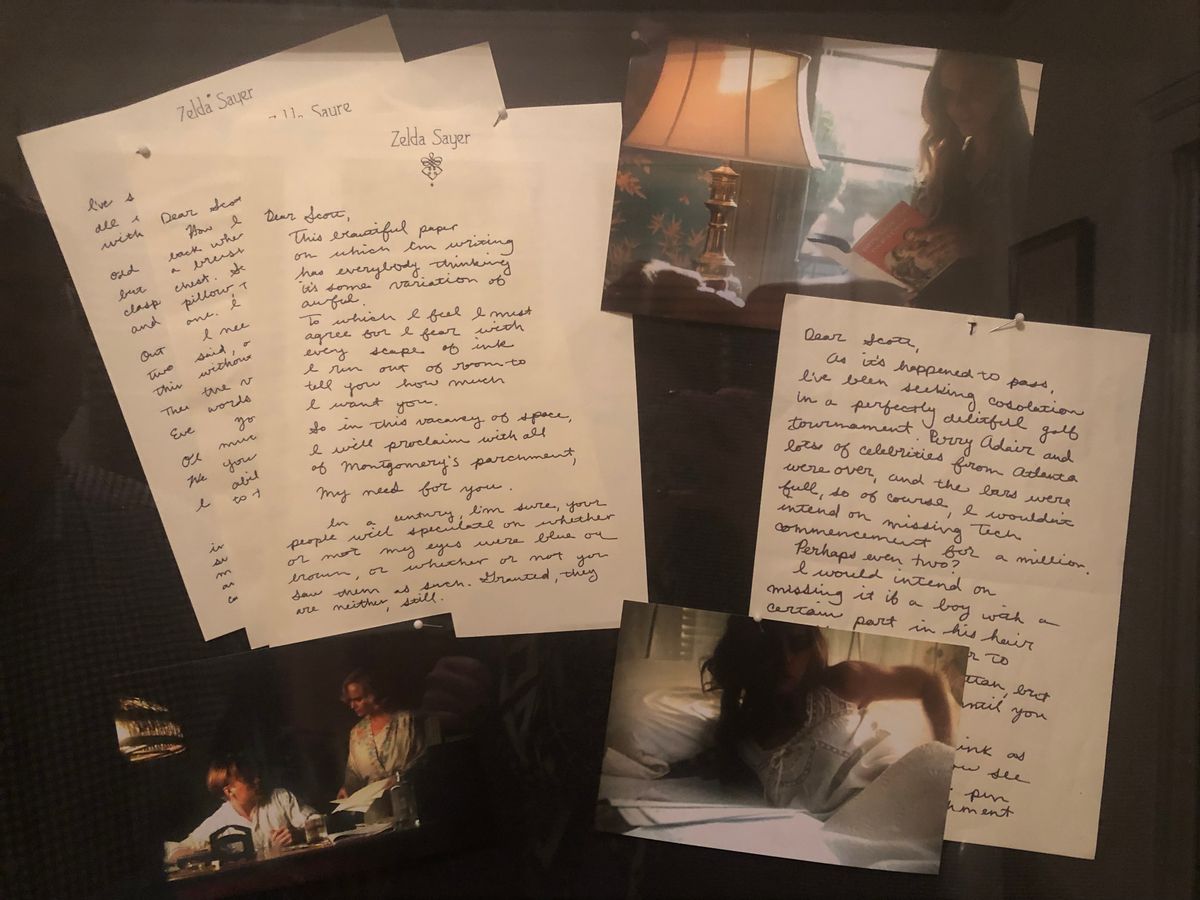 Zelda Sayer
I've s
all i
with
old
but
clasp
and
Out
two
this
The
Eve
Ol
We
I
in
su
m
an
co
Saure
Dear Sco
How I
back wher
a breast
chest. 
pillow, T
one. I
I nee
said, o
without
the v
words
yo
muc
you
abil
to t
Zelda Sayer
Dear Scott,
This beautiful paper
on which I'm writing
has everybody thinking
it's some variation of
awful.
To which I feel I must
agree for I fear with
every scape of ink
I run out of room to
tell you how much
I want you.
So in this vacancy of space,
I will proclaim with all
of Montgomery's parchment,
My need for you.
In a century, I'm sure, your
people will speculate on whether
or not my eyes were blue or
brown, or whether or not you
saw them as such. Granted, they
are neither, still.
Dear Scott,
As it's happened to pass,
I've been seeking cosolation
in a perfectly delitful golf
tournament. Perry Adair and
lots of celebrities from Atlanta
were over, and the bars were
full, so of course, I wouldn't
intend on missing Tech
commencement for a million.
Perhaps even two?
I would intend on
missing it if a boy with a
certain part in his hair
r to
ttan, but
until you
ink as
ow see
pin
hment